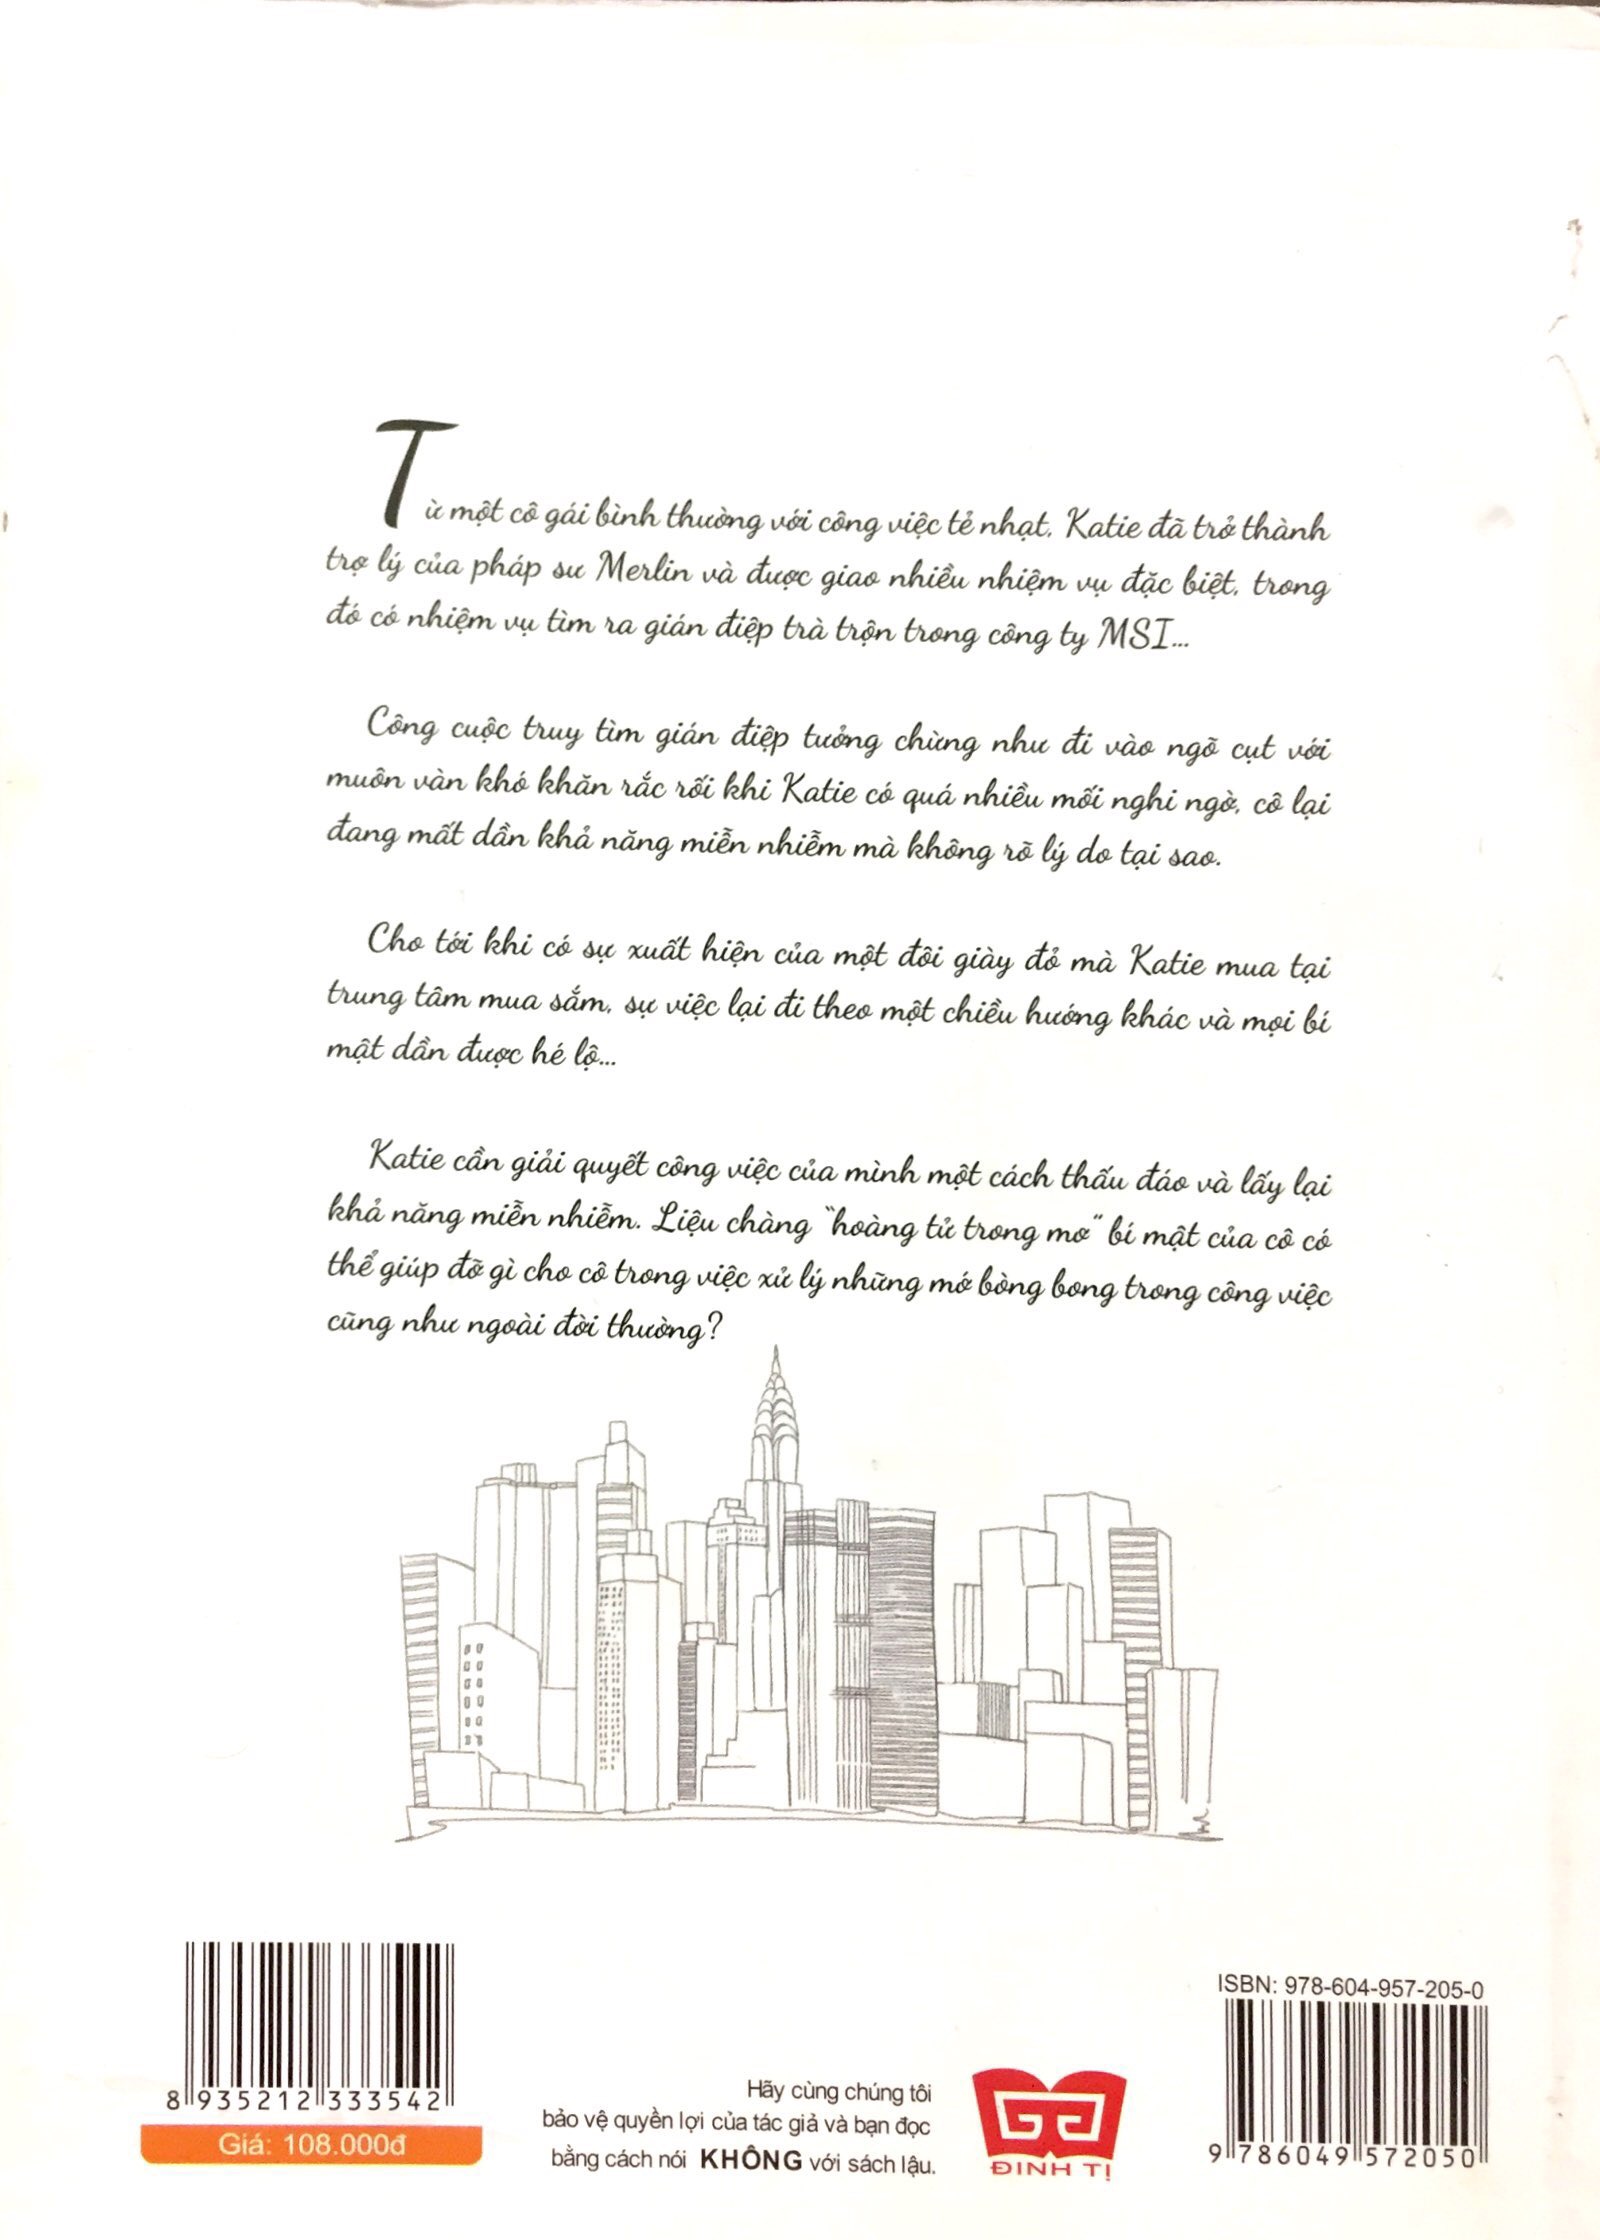 Từ một cô gái bình thường với công việc tẻ nhạt, Katie đã trở thành
trợ lý của pháp sư Merlin và được giao nhiều nhiệm vụ đặc biệt, trong
đó có nhiệm vụ tìm ra gián điệp trà trộn trong công ty MSI...
Công cuộc truy tìm gián điệp tưởng chừng như đi vào ngõ cụt với
muôn vàn khó khăn rắc rối khi Katie có quá nhiều mối nghi ngờ, cô lại
đang mất dần khả năng miễn nhiễm mà không rõ lý do tại sao.
Cho tới khi có sự xuất hiện của một đôi giày đỏ mà Katie mua tại
trung tâm mua sắm, sự việc lại đi theo một chiều hướng khác và mọi bí
mật dần được hé lộ...
Katie cần giải quyết công việc của mình một cách thấu đáo và lấy lại
khả năng miễn nhiễm. Liệu chàng "hoàng tử trong mơ" bí mật của cô có
thể giúp đỡ gì cho cô trong việc xử lý những mớ bòng bong trong công việc
cũng như ngoài đời thường?
8 935212 333542
Giá: 108.000đ
Hãy cùng chúng tôi
bảo vệ quyền lợi của tác giả và bạn đọc
bằng cách nói KHÔNG với sách lậu.
ĐINH TỊ
ISBN: 978-604-957-205-0
9 786049 572050